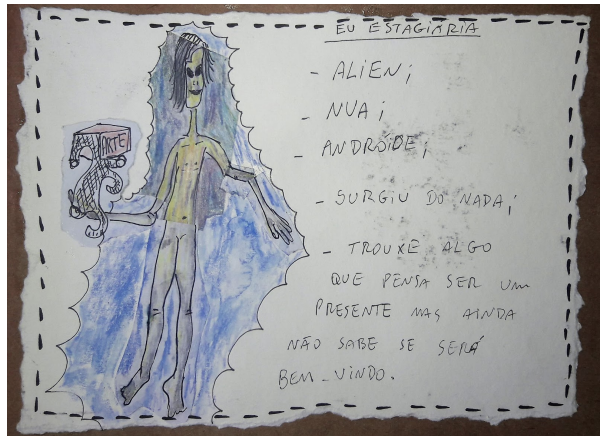 EU ESTAGIÁRIA
- ALIEN;
- NUA;
- ANDROIDE;
- SURGIU DO NADA;
- TROUXE ALGO
QUE PENSA SER UM
PRESENTE MAS AINDA
NÃO SABE SE SERÁ
BEM-VINDO.
ARTE